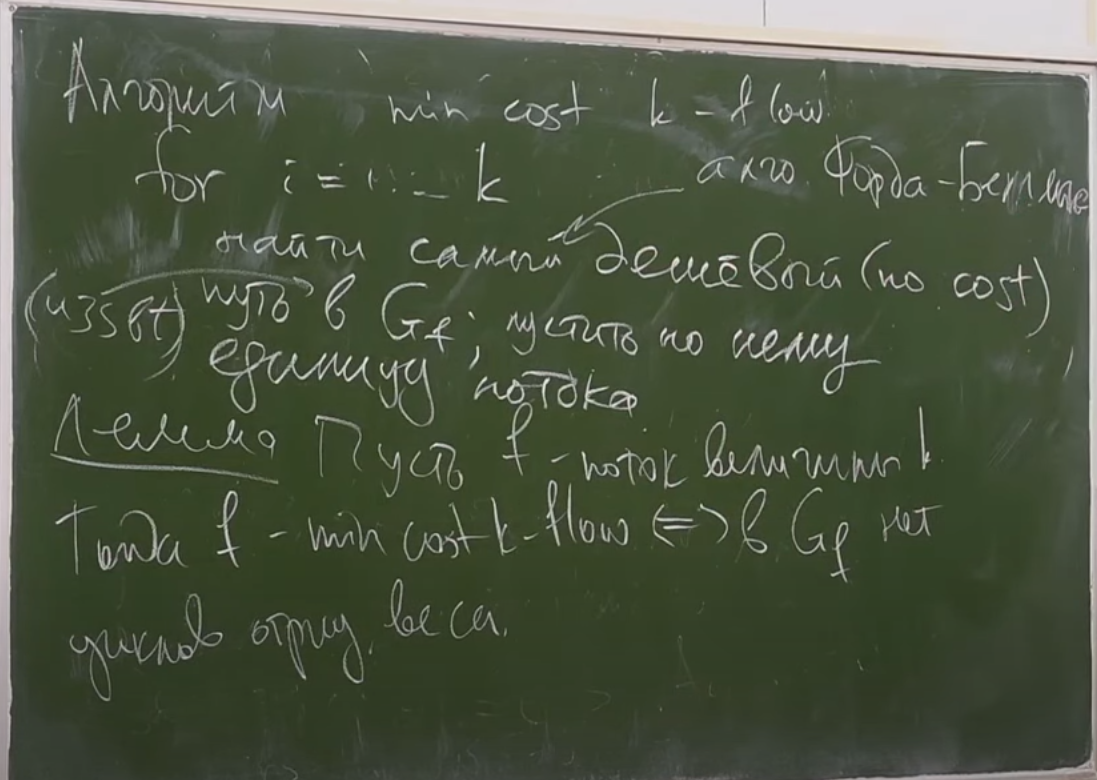 Алгоритм min cost k-flow
for i = 1 … k алго Форда-Беллмана
найти самый дешёвый (по cost)
(из s в t) путь в G_f; пустить по нему
единицу потока
Лемма Пусть f - поток величины k.
Тогда f - min cost k-flow <=> в G_f нет
циклов отриц. веса.